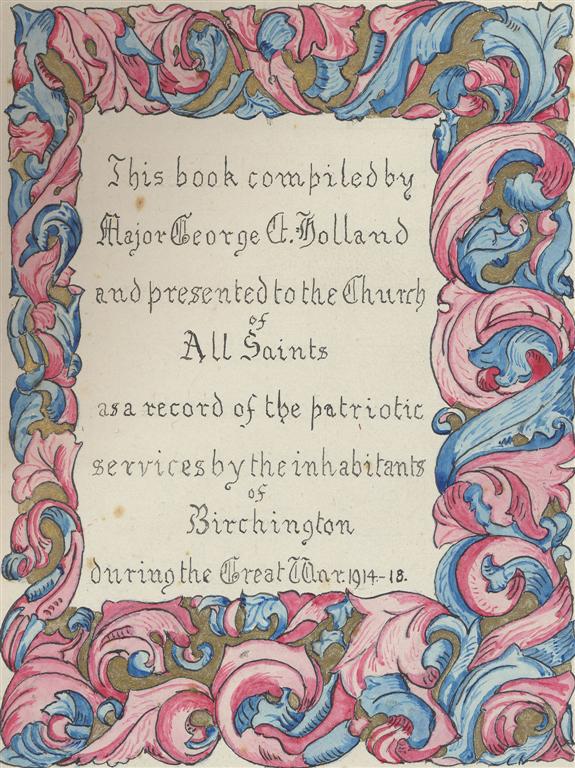 This book compiled by
Major George Holland
and presented to the Church
of
All Saints
as a record of the patriotic
services by the inhabitants
of
Birchington
during the Great War. 1914-18.